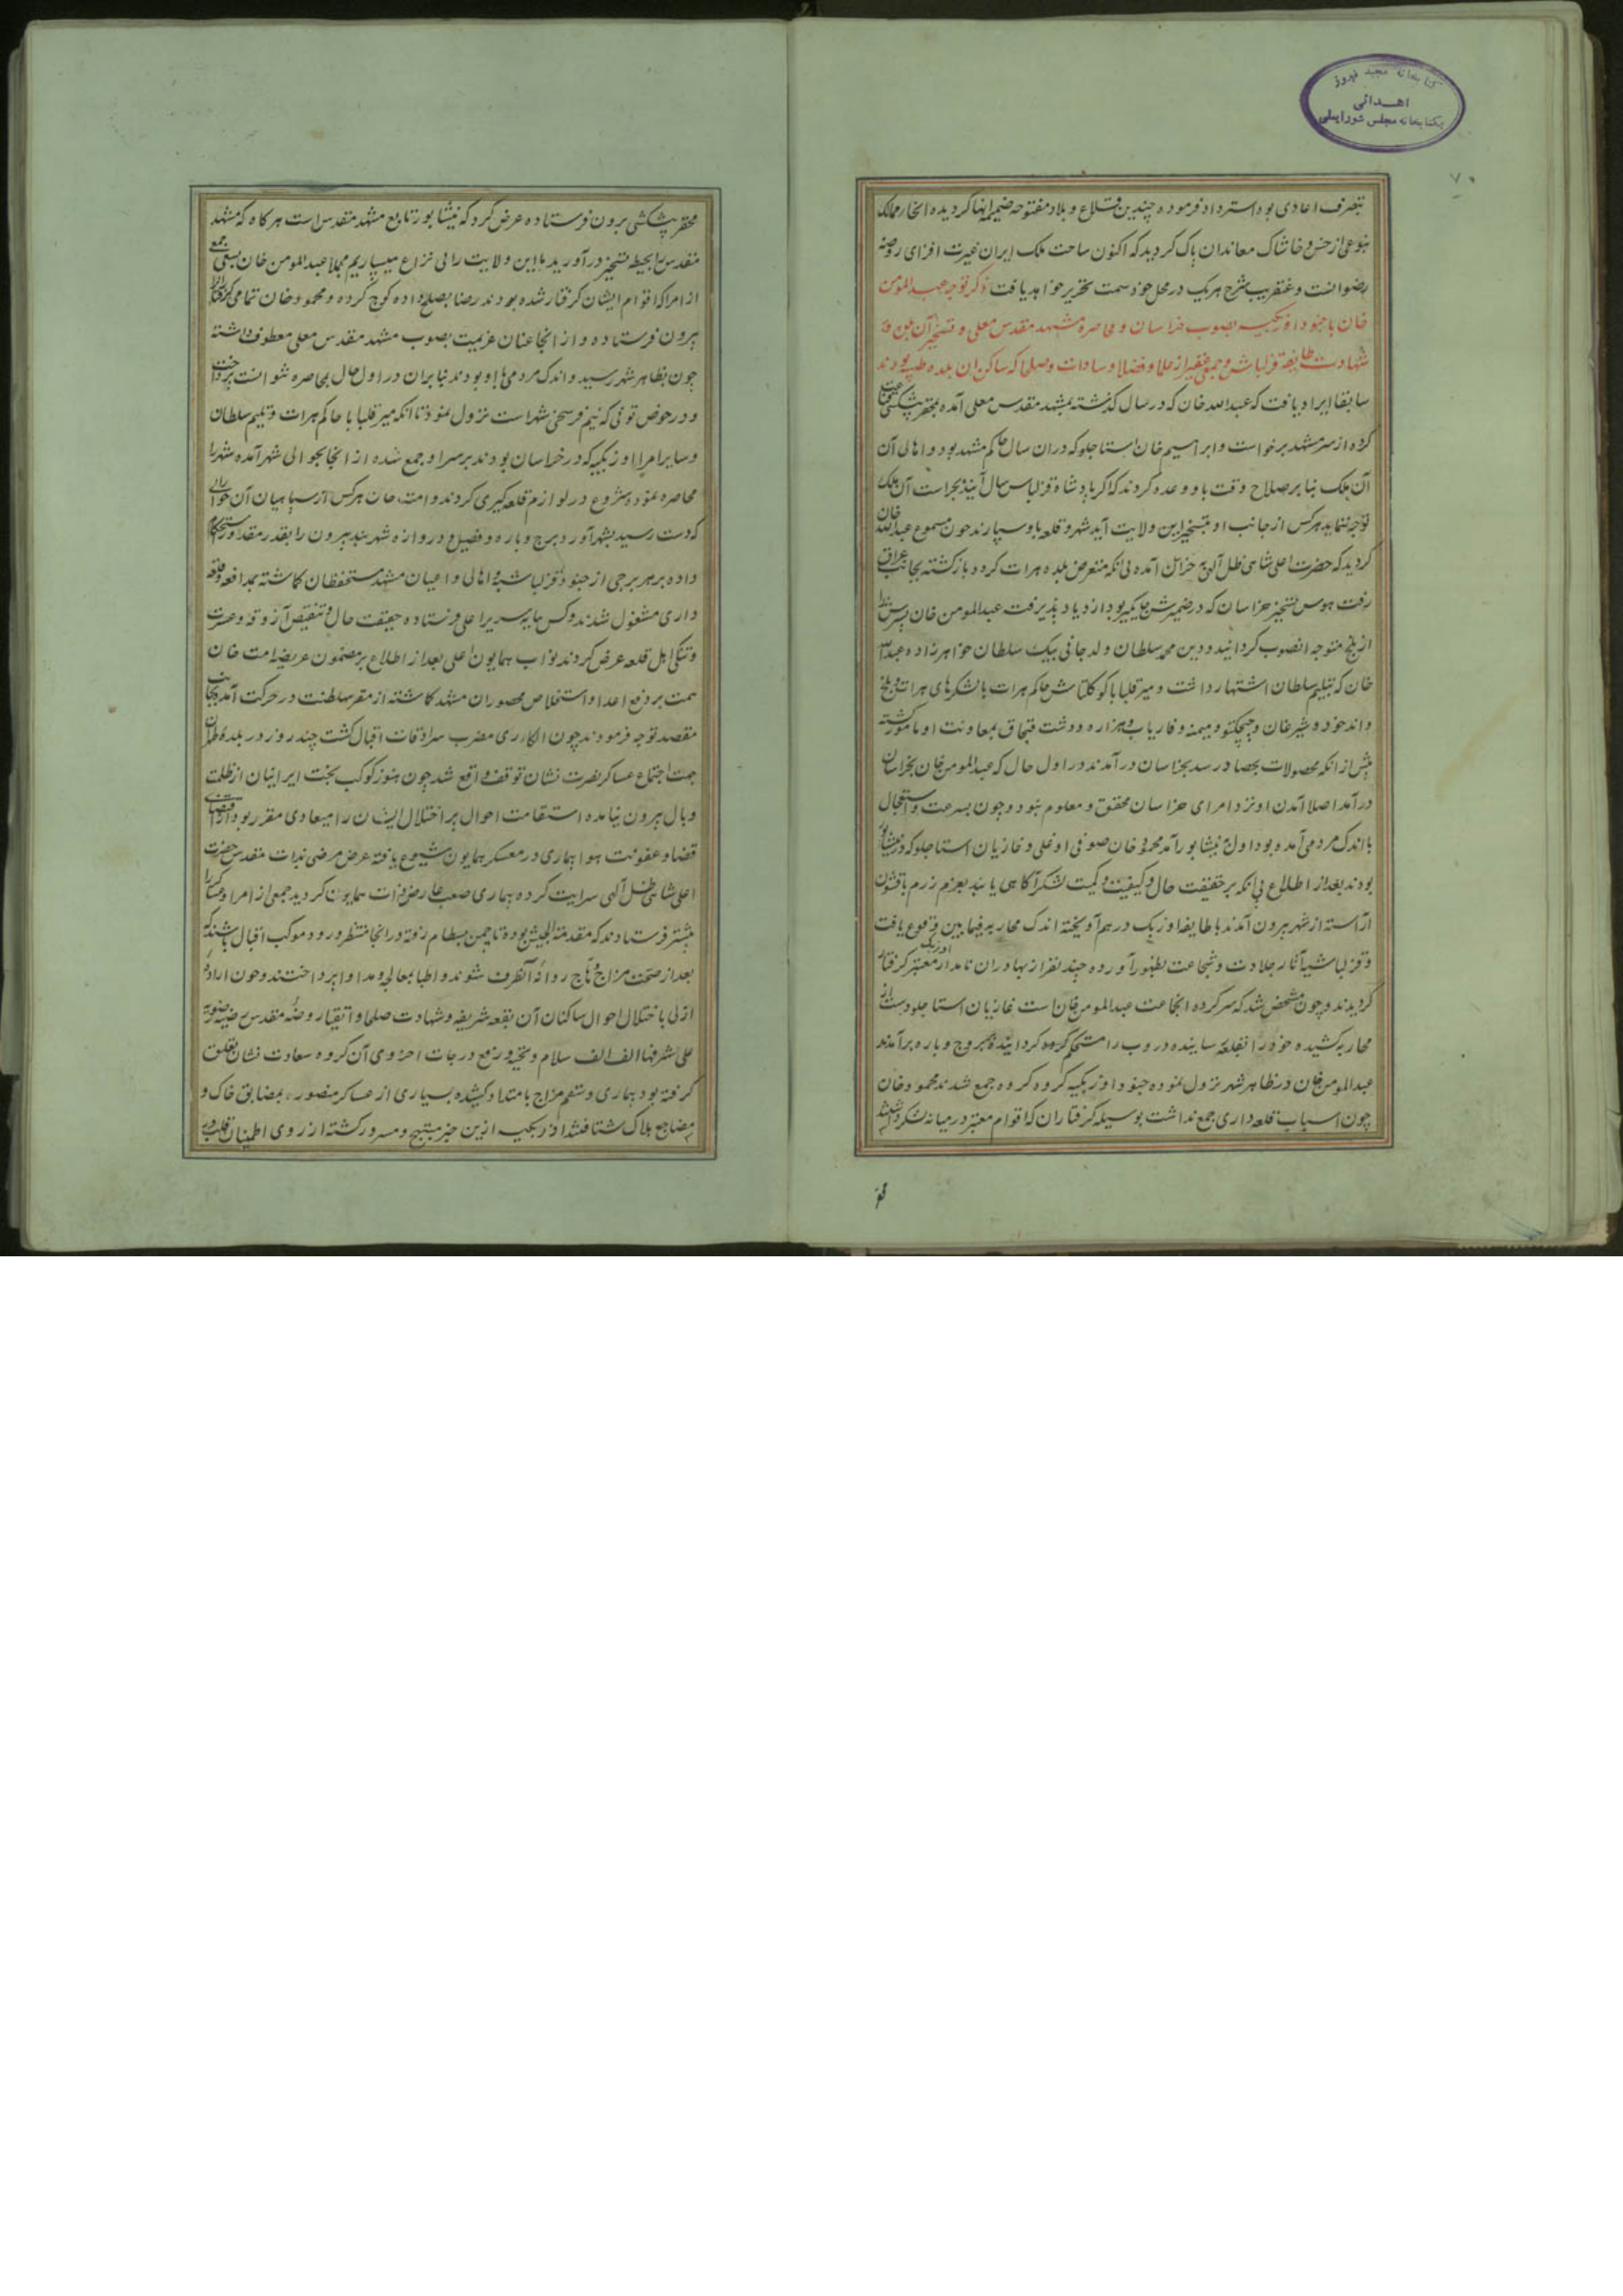 کتابخانه مجید فیروز
اهدائی
بکتابخانه مجلس شورایملی
۷۰
بتصرف اعادی بود استرداد فرموده چندین قلاع و بلاد مفتوحه ضمیمه انها کردیده انحا ممالک
بنوعی از خس و خاشاک معاندان پاک کردید که اکنون ساحت ملک ایران غیرت افزای روضه
رضوانست و عنقریب شرح هریک در محل خود سمت تحریر خواهد یافت ذکر توجه عبدالمومن
خان با جنود اوزبکیه بصوب خراسان و محاصره مشهد مقدس معلی و تسخیر آن
شهادت طایفه قزلباش و جمعی غفیر از علما و فضلا و سادات و صلحا که ساکن ان بلده طیبه بودند
سابقا ایراد یافت که عبدالله خان که در سال کذشته بمشهد مقدس معلی آمده بمحقر پیشکشی قناعت
کرده از سر مشهد برخواست و ابراهیم خان استاجلو که دران سال حاکم مشهد بود و اهالی آن
آن ملک بنا بر صلاح وقت باو وعده کردند که اکر پادشاه قزلباش سال آینده بخراسان
توجه ننماید هرکس از جانب او بتسخیر این ولایت آید شهر و قلعه باو سپارند چون مسموع عبدالله خان
کردید که حضرت اعلی شاهی ظل آلهی بخراسان آمده بی انکه متعرض بلده هرات کردد بازکشته بجانب عراق
رفت هوس تسخیر خراسان که در ضمیرش جایکیر بود ازدیاد پذیرفت عبدالمومن خان پسرش را
از بلخ متوجه انصوب کردانید و دین محمد سلطان ولد جانی بیک سلطان خواهرزاده عبدالله
خان که بتیلیم سلطان اشتهار داشت و میر قلبابا کوکلتاش حاکم هرات با لشکرهای هرات و بلخ
و اندخود و شبرغان و چیچکتو و میمنه و فاریاب و هزاره و دشت قبچاق بمعاونت او مامور کشته
پیش از انکه محصولات بحصاد رسد بخراسان درآمدند در اول حال که عبدالمومن خان بخراسان
درآمد اصلا آمدن او نزد امرای خراسان محقق و معلوم نبود و چون بسرعت و استعجال
با اندک مردمی آمده بود اول به نیشابور آمد محمود خان صوفی اوغلی و غازیان استاجلو که در نیشابور
بودند بعد از اطلاع بی انکه بر حقیقت حال و کیفیت و کمیت لشکر آکاهی یابند بعزم رزم با قشون
آراسته از شهر بیرون آمدند با طایفه اوزبک درهم آویخته اندک محاربه فیما بین وقوع یافت
و قزلباشیه آثار جلادت و شجاعت بظهور آورده چند نفر از بهادران نامدار معتبر اوزبک کرفتار
کردیدند و چون مشخص شد که سرکرده انجماعت عبدالمومن خان است غازیان استاجلو دست از
محاربه کشیده خود را بقلعه رسانیده دروب را مستحکم کردانیدند و ببروج و باره برآمدند
عبدالمومن خان در ظاهر شهر نزول نموده جنود اوزبکیه کروه کروه جمع شدند محمود خان
چون اسباب قلعه داری جمع نداشت بوسیله کرفتاران که اقوام معتبر در میانه لشکر داشتند
محقر
محقر پیشکشی بیرون فرستاده عرض کرد که نیشابور تابع مشهد مقدس است هرکاه که مشهد
مقدس را بحیطه تسخیر درآورید ما این ولایت را بی نزاع میسپاریم مجملا عبدالمومن خان بسعی جمعی
از امرا که اقوام ایشان کرفتار شده بودند رضا بصلح داده کوچ کرده و محمود خان تمامی کرفتاران را
بیرون فرستاده و از انجا عنان عزیمت بصوب مشهد مقدس معلی معطوف داشته
چون بظاهر شهر رسید و اندک مردمی با او بودند بنابران در اول حال بمحاصره نتوانست پرداخت
و در حوض توغی که نیم فرسخی شهر است نزول نمود تا انکه میر قلبابا حاکم هرات و تیلیم سلطان
و سایر امرا اوزبکیه که در خراسان بودند بر سر او جمع شده از انجا بحوالی شهر آمده شهر را
محاصره نمود و شروع در لوازم قلعه کیری کردند و امت خان هرکس از سپاهیان آن حوالی
که دست رسید بشهر آورد برج و باره و فصیل و دروازه شهر بند بیرون را بقدر مقدور استحکام
داده بر سر هر برجی از جنود قزلباشیه و اهالی و اعیان مشهد مستحفظان کماشته بمدافعه و قلعه
داری مشغول شدند و کس بپایه سریر اعلی فرستاده حقیقت حال و تنقیص آزوقه و عسرت
و تنکی اهل قلعه عرض کردند نواب همایون اعلی بعد از اطلاع بر مضمون عریضه امت خان
همت بر دفع اعدا و استخلاص محصوران مشهد کماشته از مقر سلطنت در حرکت آمده بجانب
مقصد توجه فرمودند چون الکاء ری مضرب سرادقات اقبال کشت چند روز در بلده طهران
جهت اجتماع عساکر نصرت نشان توقف واقع شد چون هنوز کوکب بخت ایرانیان از ظلمت
وبال بیرون نیامده استقامت احوال بر اختلال ایشان را میعادی مقرر بود از اقتضای
قضا و عفونت هوا بیماری در معسکر همایون شیوع یافته عرض مرضی بذات مقدس حضرت
اعلی شاهی ظل آلهی سرایت کرده بیماری صعب عارض ذات همایون کردید جمعی از امرا و عساکر را
پیشتر فرستادند که مقدمة الجیش بوده تا چمن بسطام رفته در انجا منتظر ورود موکب اقبال باشند که
بعد از صحت مزاج وهاج روانه آنطرف شوند و اطبا بمعالجه و مداوا پرداختند و چون اراده
ازلی باختلال احوال ساکنان آن بقعه شریفه و شهادت صلحا و اتقیا روضه مقدس رضیه رضویه
علی مشرفها الف الف سلام و تحیه و رفع درجات اخروی آن کروه سعادت نشان تعلق
کرفته بود بیماری و سقم مزاج بامتداد کشیده بسیاری از عساکر منصوره بمضایق خاک و
مضاجع هلاک شتافتند اوزبکیه ازین خبر مبتهج و مسرور کشته از روی اطمینان قلب